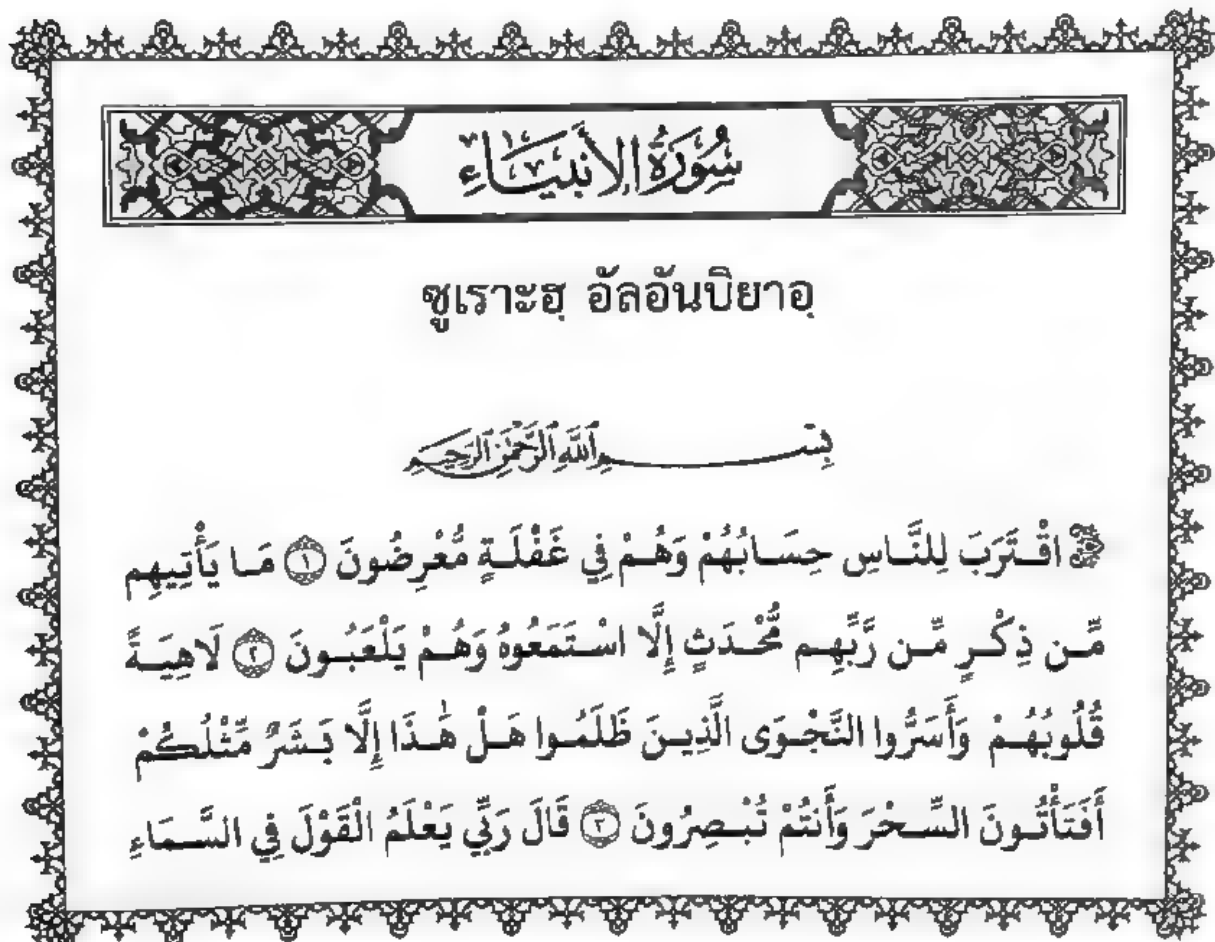 سُورَةُ الأَنبِيَاءِ
ซูเราะฮฺ อัลอันบิยาอฺ
بِسْمِ ٱللَّهِ ٱلرَّحْمَٰنِ ٱلرَّحِيمِ
۞ اقْتَرَبَ لِلنَّاسِ حِسَابُهُمْ وَهُمْ فِي غَفْلَةٍ مُّعْرِضُونَ ۝١ مَا يَأْتِيهِم
مِّن ذِكْرٍ مِّن رَّبِّهِم مُّحْدَثٍ إِلَّا اسْتَمَعُوهُ وَهُمْ يَلْعَبُونَ ۝٢ لَاهِيَةً
قُلُوبُهُمْ وَأَسَرُّوا النَّجْوَى الَّذِينَ ظَلَمُوا هَلْ هَٰذَا إِلَّا بَشَرٌ مِّثْلُكُمْ
أَفَتَأْتُونَ السِّحْرَ وَأَنتُمْ تُبْصِرُونَ ۝٣ قَالَ رَبِّي يَعْلَمُ الْقَوْلَ فِي السَّمَاءِ